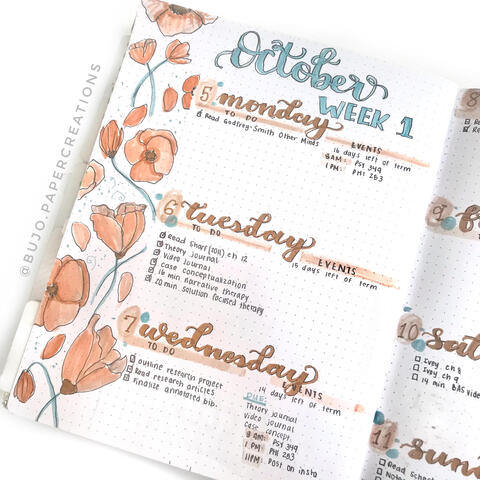 @BUJO.PAPERCREATIONS
October
WEEK 1
5 monday
TO DO
Read Godfrey-Smith Other Minds
EVENTS
16 days left of term
8AM: PSY 349
1 PM: PHI 283
6 tuesday
TO DO
Read Sharf (2011), ch 12
Theory Journal
Video Journal
Case Conceptualization
16 min narrative therapy
20 min. solution focused therapy
EVENTS
15 days left of term
7 wednesday
TO DO
outline research project
Read research articles
Finalize annotated bib.
EVENTS
14 days left of term
DUE:
Theory journal
Video journal
Case concept.
8 AM: PSY 349
1 PM: PHI 283
11PM: Post on insta
8
9
10
Ivey ch 8
Ivey ch 9
14 min BAS video
11
Read